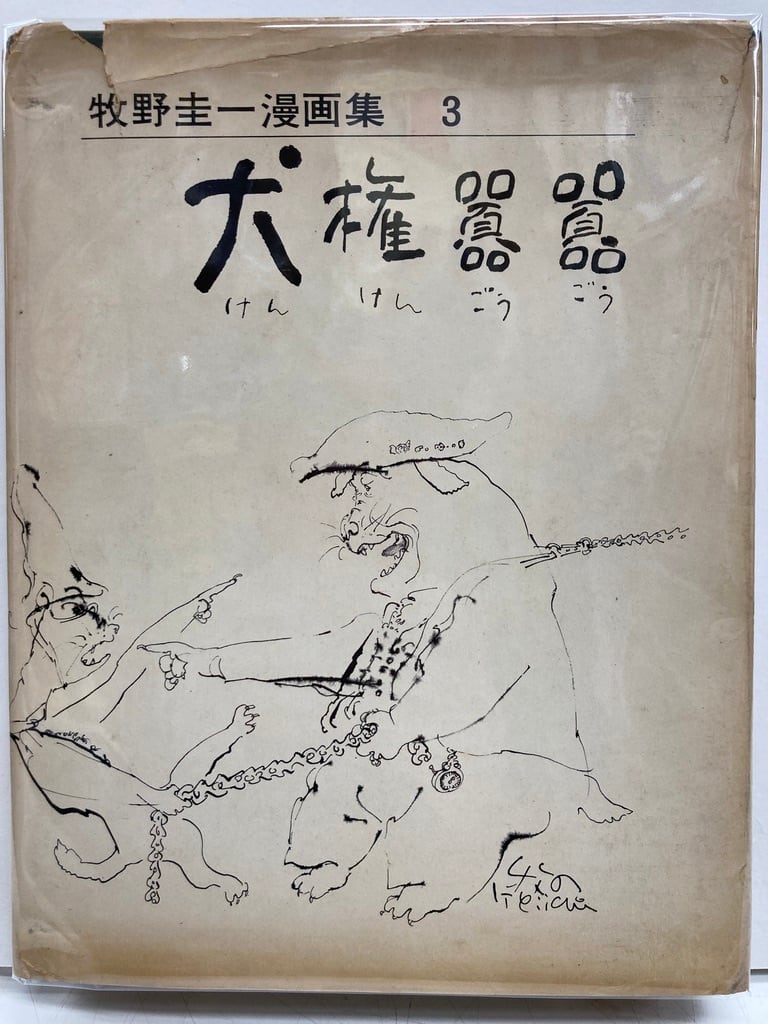 牧野圭一漫画集 3
犬権囂囂
けんけんごうごう